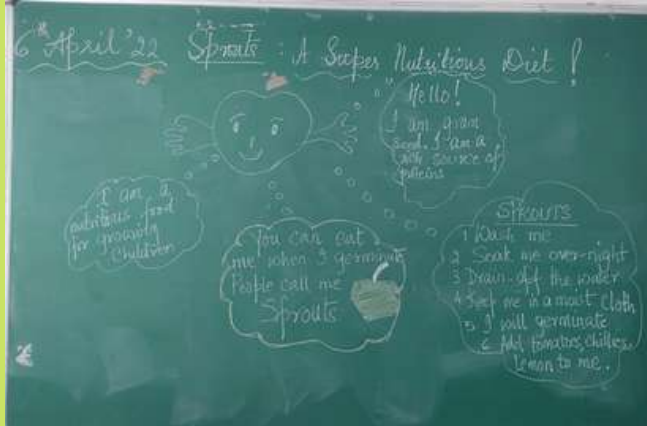 6th April '22 Sprouts : A Super Nutritious Diet !
Hello!
I am gram
seed. I am a
rich source of
proteins
I am a
nutritious food
for growing
children
You can eat
me when I germinate
People call me
Sprouts
SPROUTS
1 Wash me
2 Soak me over-night
3 Drain-off the water
4 Keep me in a moist cloth
5 I will germinate
6 Add tomatoes, chillies,
lemon to me.